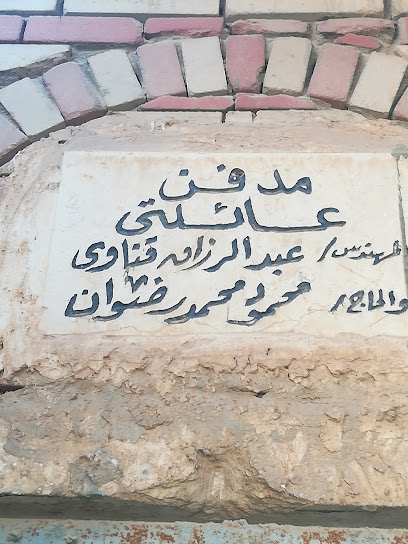 مدفن
عائلتى
المهندس/ عبد الرزاق قناوى
والحاج/ محمود محمد رضوان